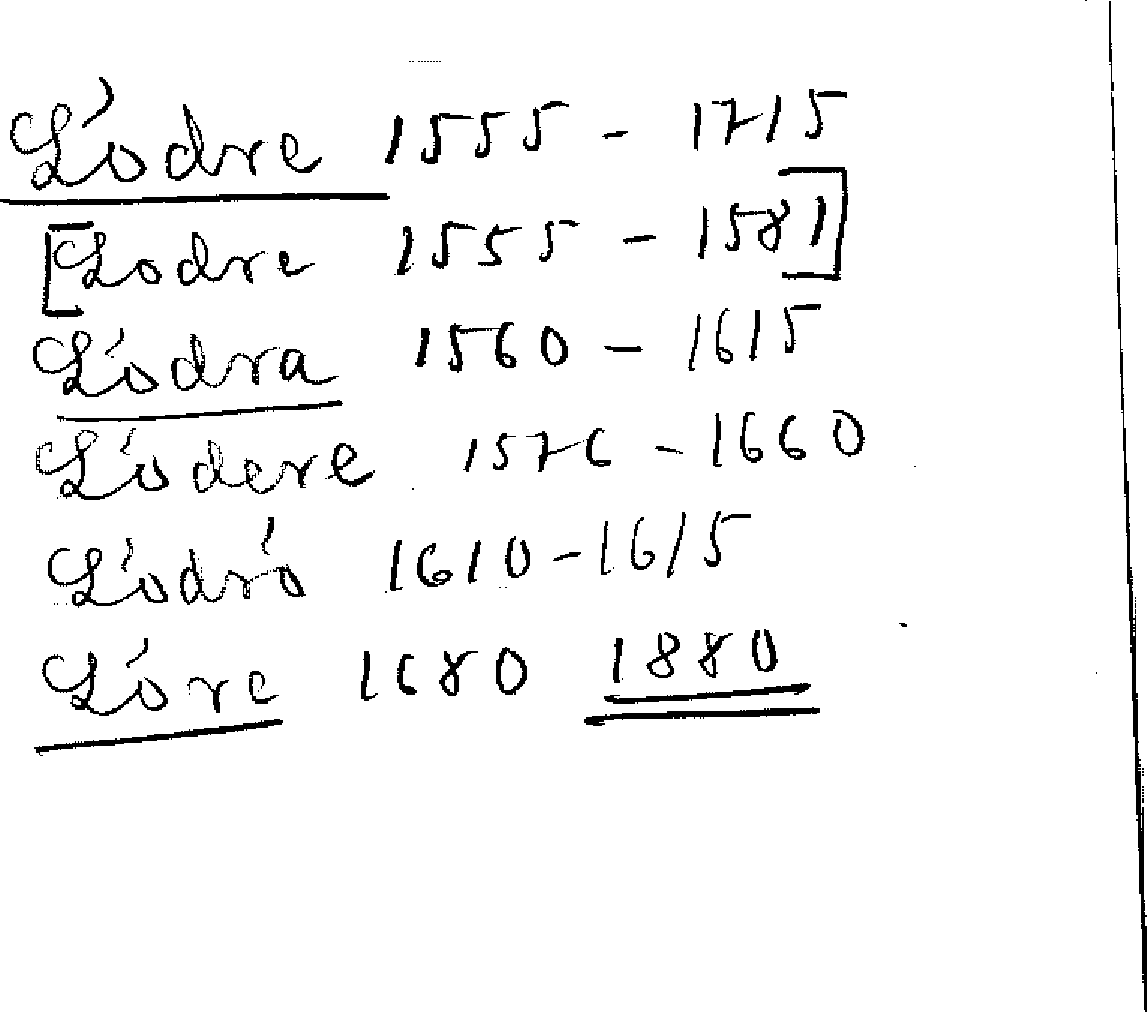 Lódre 1555 - 1715
[Lodre 1555 - 1581]
Lódra 1560 - 1615
Lódere 1576 - 1660
Lódró 1610-1615
Lóre 1680 1880